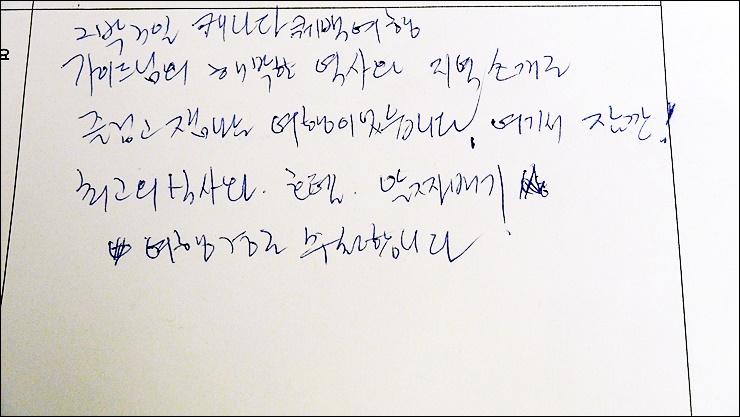 요
2박 3일 캐나다 퀘백여행
가이드님의 해박한 역사와 지역소개로
즐겁고 재미나는 여행이였습니다. 여기서 잠깐!
최고의 식사와. 호텔. 알차재기!
여행경로 부탁합니다